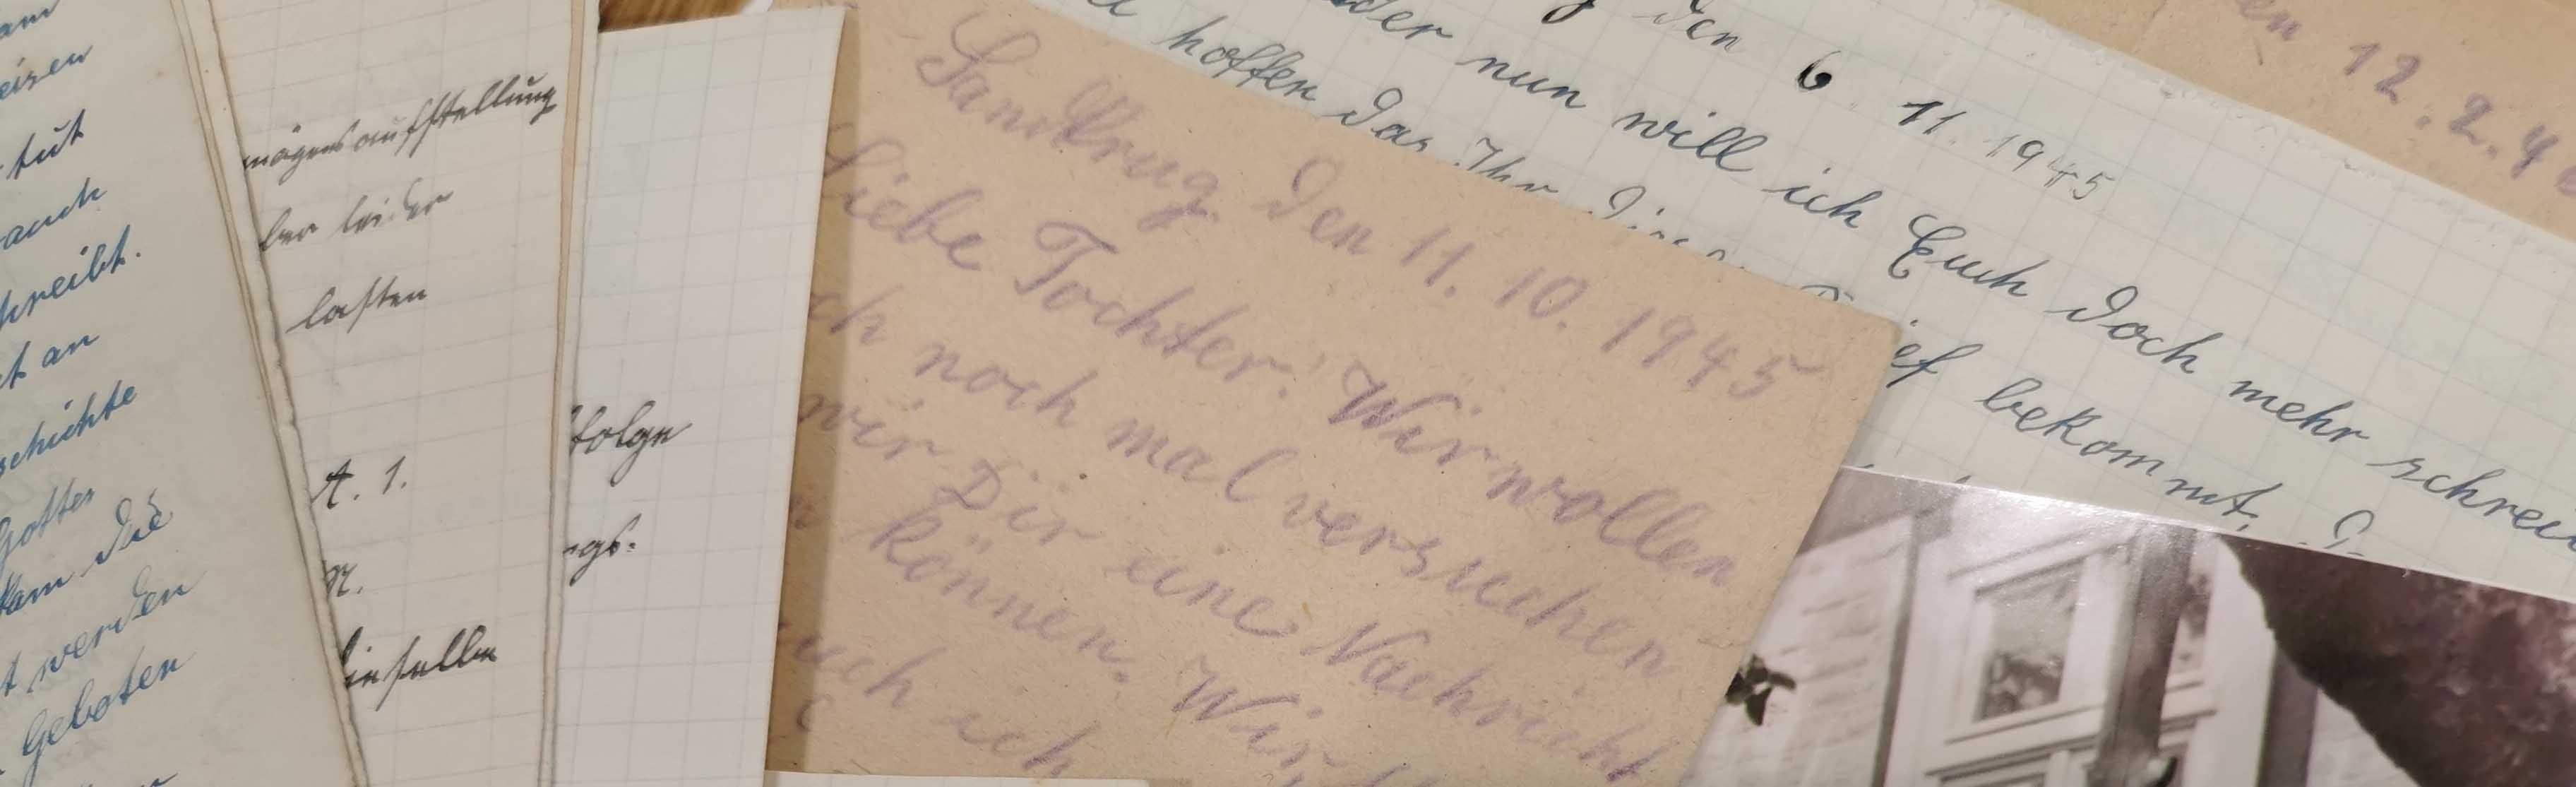 eisen
tut
auch
chreibt.
t an
schichte
Gottes
kam die
t werden
Geboten
mögensaufstellung
ber leider
lasten
A. 1.
N.
dieselben
folge
ngs-
Sandkrug den 11. 10. 1945
Liebe Tochter! Wir wollen
ch noch mal versuchen
wir Dir eine Nachricht
n können. Wir
uch ich
den 6 11. 1945
der nun will ich Euch doch mehr schrei
hoffen das Ihr
ief bekommt.
en 12. 2. 4